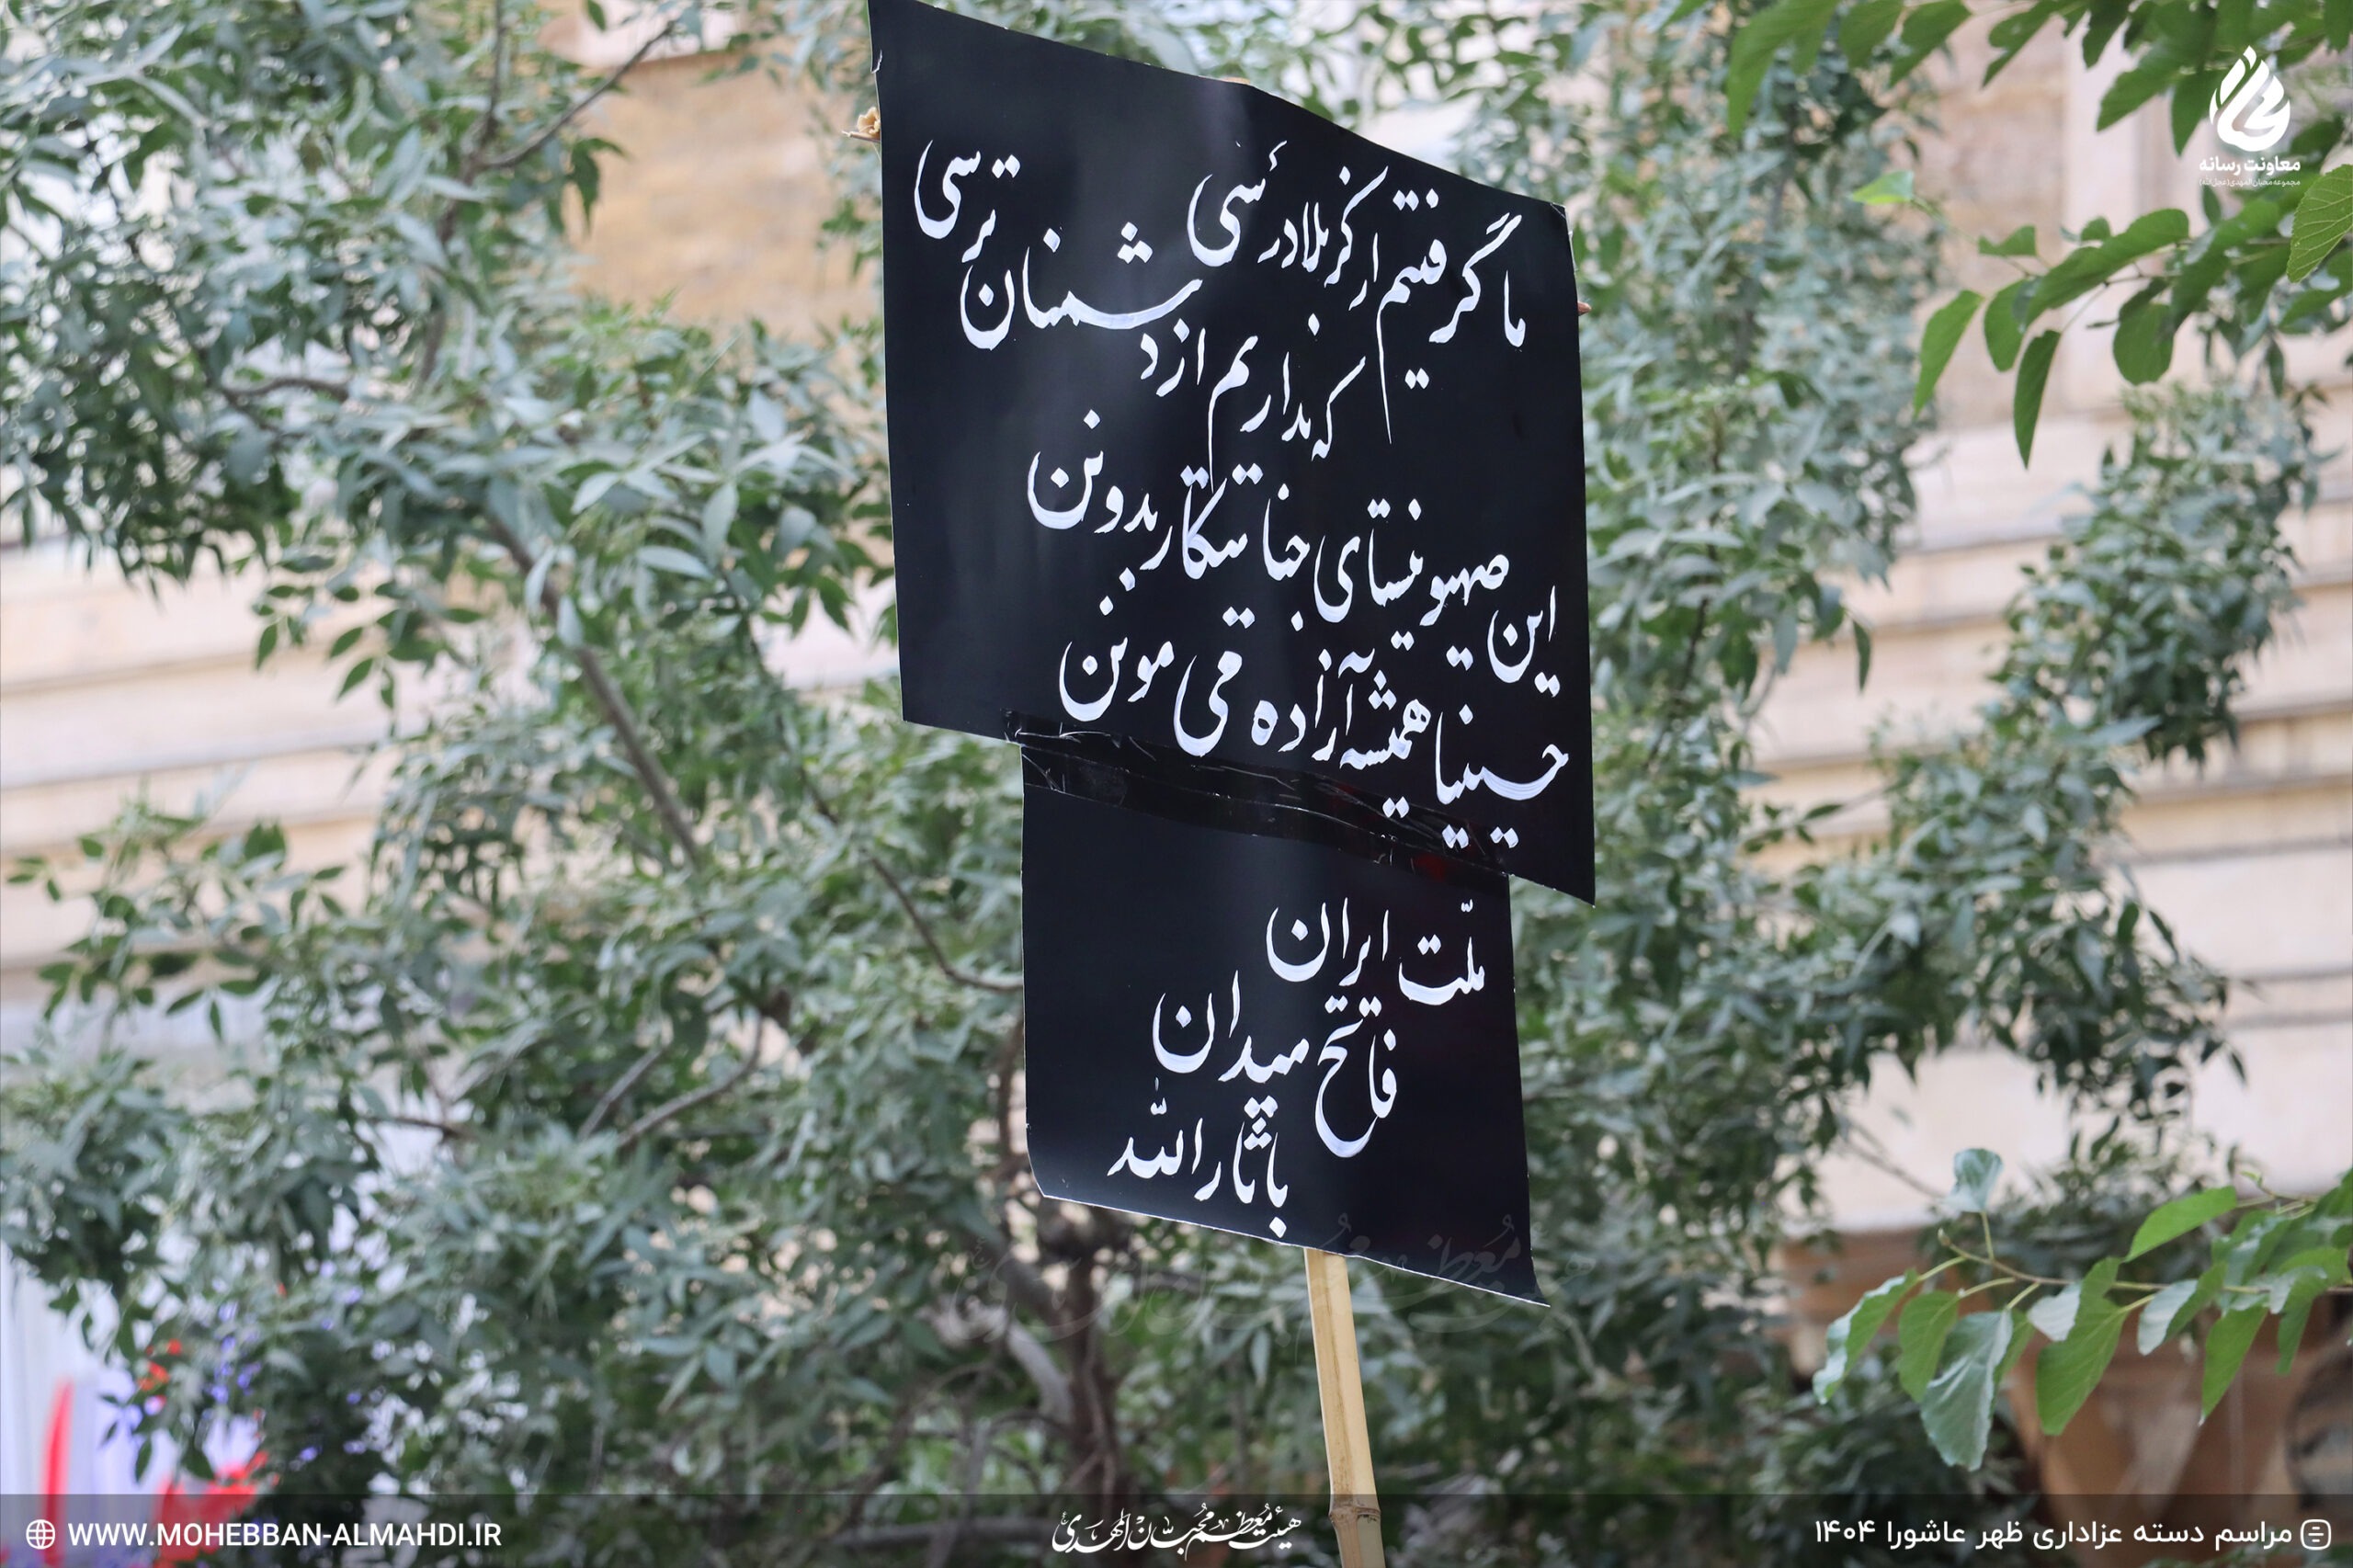 معاونت رسانه
ما گرفتیم از کربلا درسی
که نداریم از دشمنان ترسی
این صهیونیستای جنایتکار بدونن
حسینیا همیشه آزاده می مونن
ملّت ایران
فاتح میدان
با ثارالله
WWW.MOHEBBAN-ALMAHDI.IR
هیئت معظم محبان المهدی
مراسم دسته عزاداری ظهر عاشورا ۱۴۰۴